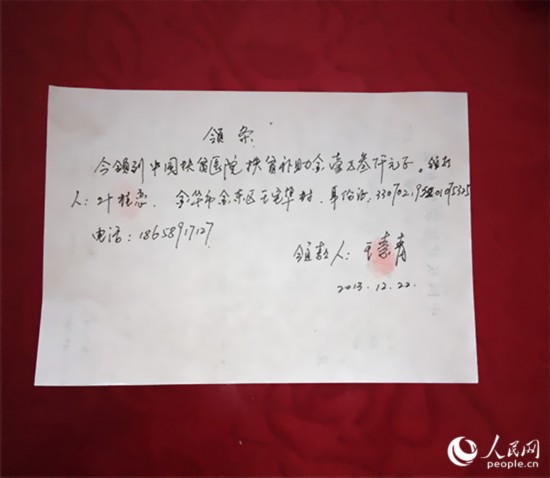 领条
今领到中国扶贫医院扶贫补助金壹万叁仟元正。经打
人:叶桂 金华市金东区王宅华村. 身份证:330702195201075325
电话:18658917127
领款人:王素青
2013.12.22.
人民网
people.cn